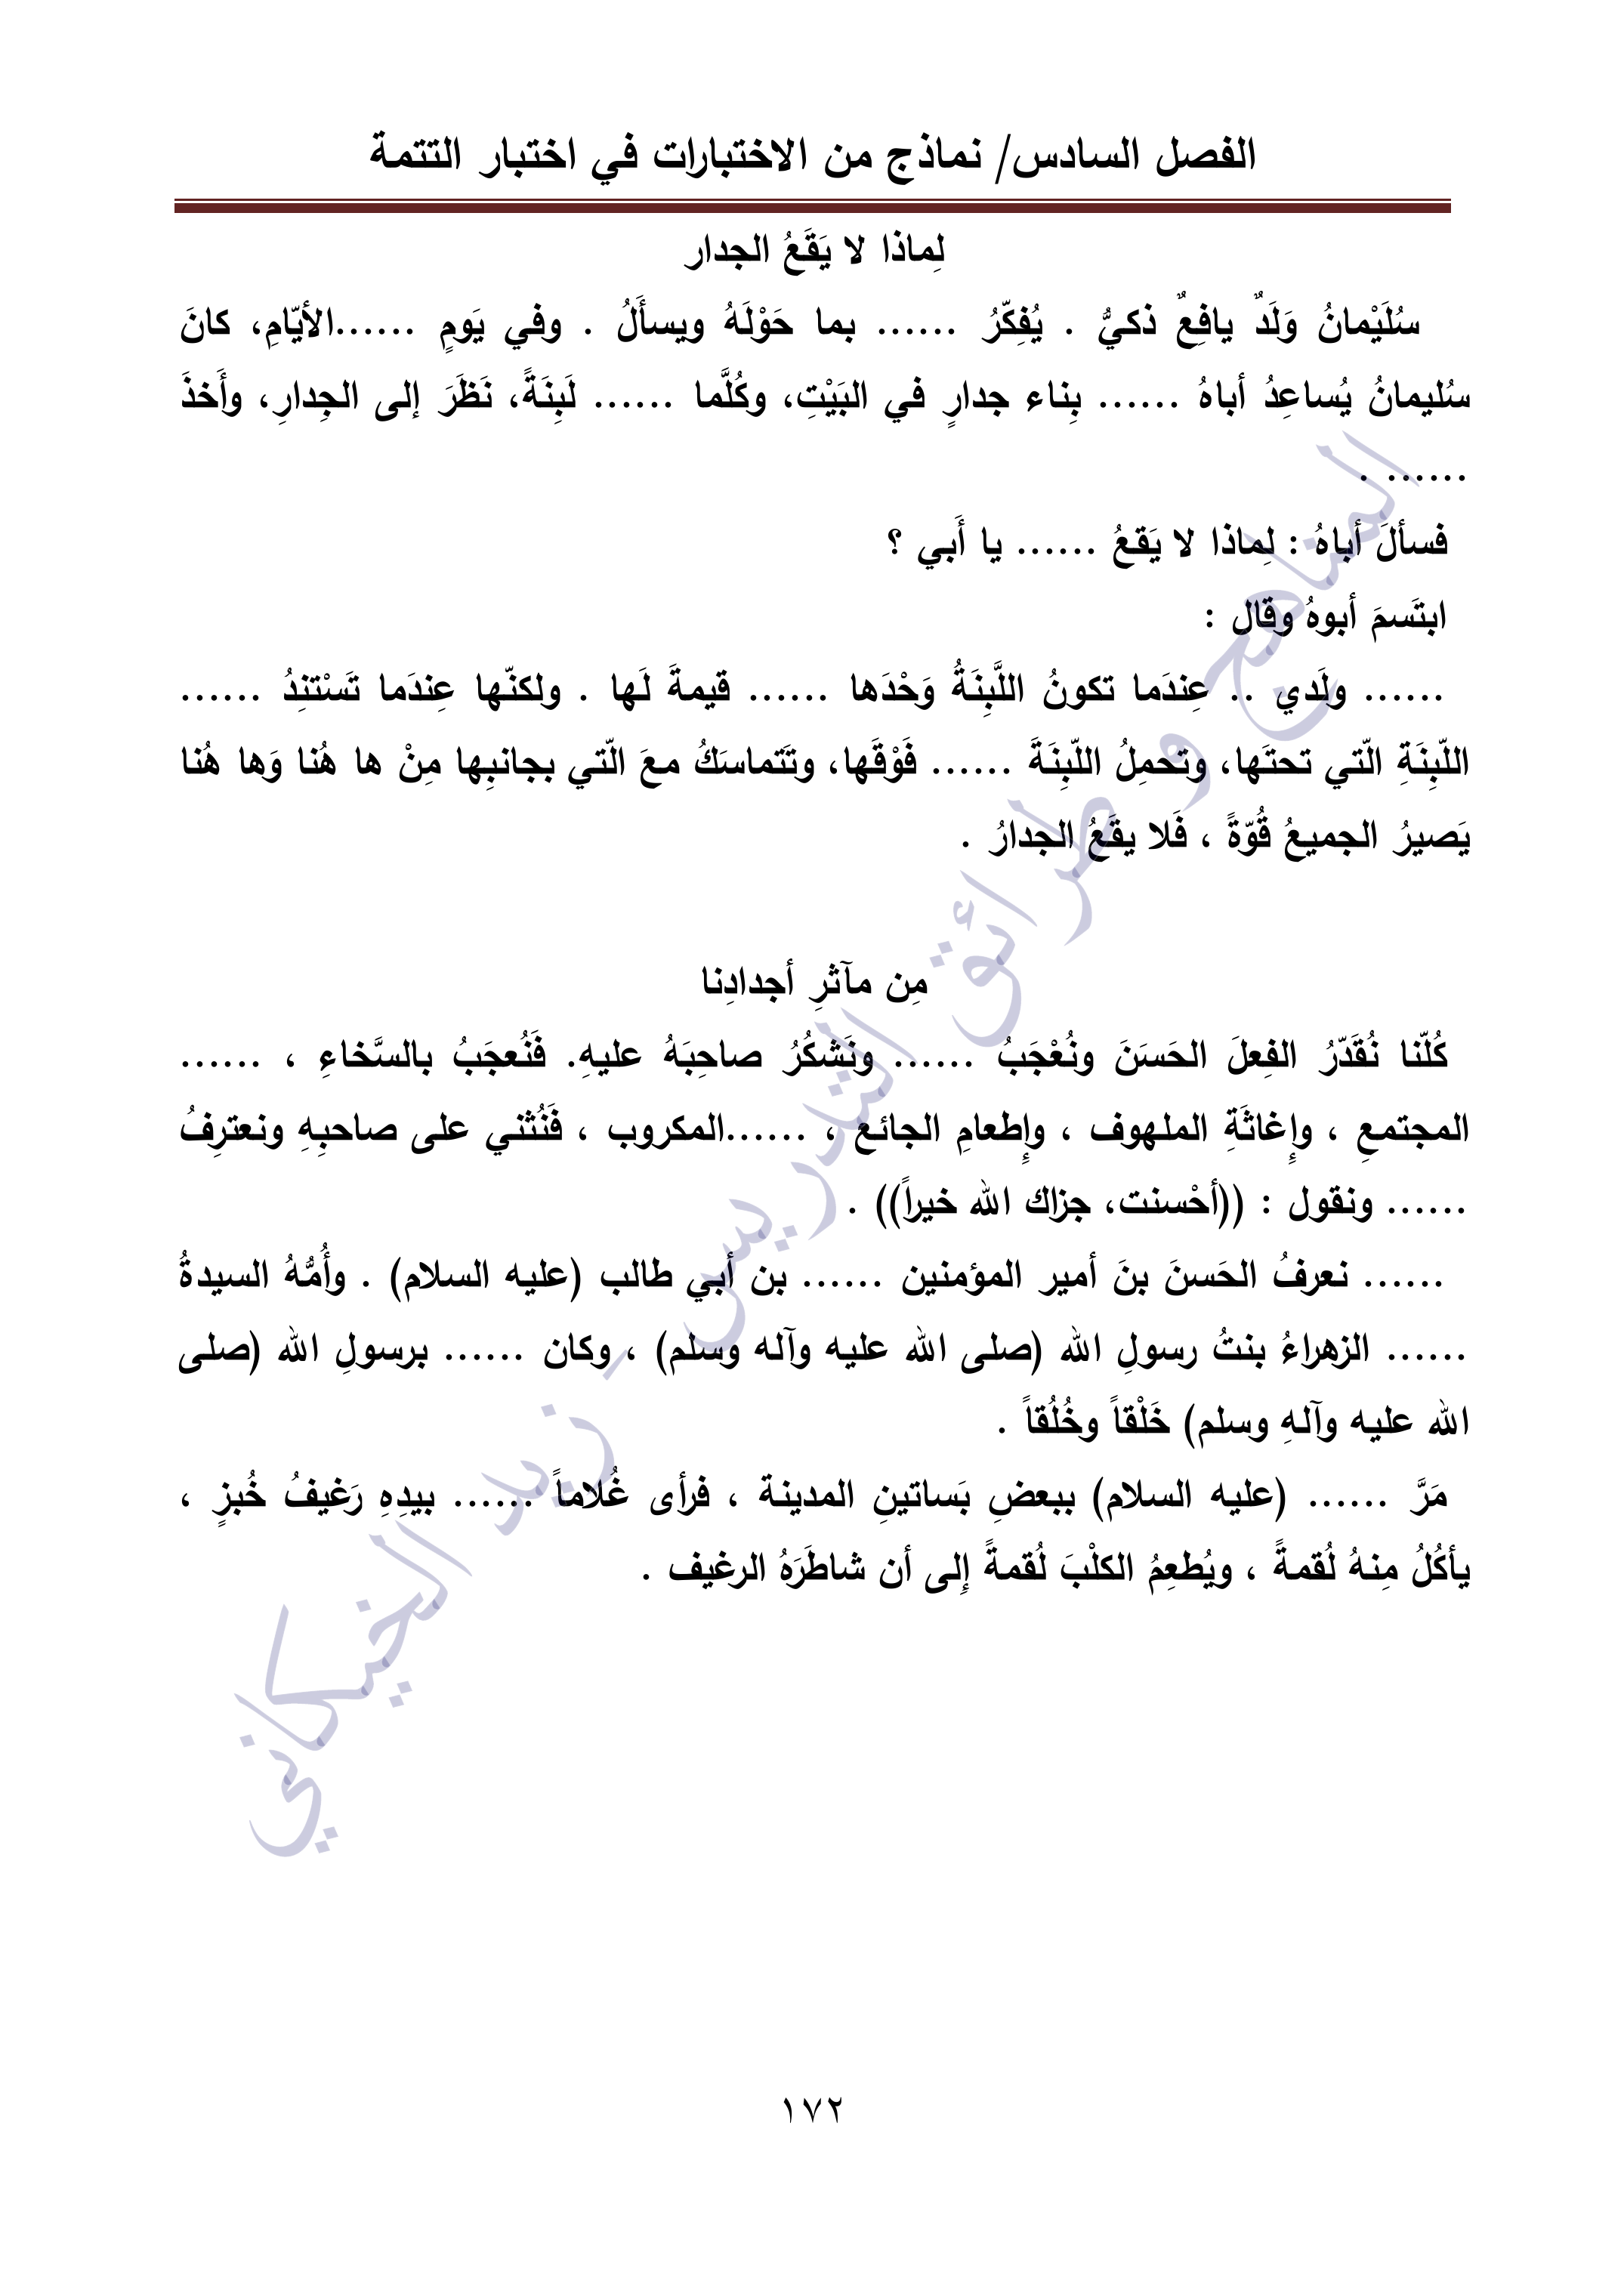 الفصل السادس/ نماذج من الاختبارات في اختبار التتمة
لِماذا لا يَقَعُ الجدار
سُلَيْمانُ وَلَدٌ يافِعٌ ذكيُّ . يُفِكّرُ ...... بما حَوْلَهُ ويسأَلُ . وفي يَومٍ ......الأيّامِ، كانَ
سُليمانُ يُساعِدُ أباهُ ...... بِناء جدارٍ في البَيْتِ، وكُلَّما ...... لَبِنَةً، نَظَرَ إلى الجِدارِ، وأَخذَ
...... .
فسألَ أباهُ : لِماذا لا يَقعُ ...... يا أَبي ؟
ابتَسمَ أبوهُ وقال :
...... ولَدي .. عِندَما تكونُ اللَّبِنَةُ وَحْدَها ...... قيمةَ لَها . ولكنّها عِندَما تَسْتنِدُ ......
اللّبِنَةِ الّتي تحتَها، وتحمِلُ اللّبِنَةَ ...... فَوْقَها، وتَتماسَكُ معَ الّتي بجانبِها مِنْ ها هُنا وَها هُنا
يَصيرُ الجميعُ قُوّةً ، فَلا يقَعُ الجدارُ .
مِن مآثرِ أجدادِنا
كُلّنا نُقَدّرُ الفِعلَ الحَسَنَ ونُعْجَبُ ...... ونَشكُرُ صاحِبَهُ عليهِ. فَنُعجَبُ بالسَّخاءِ ، ......
المجتمعِ ، وإِغاثَةِ الملهوف ، وإِطعامِ الجائع ، ......المكروب ، فَنُثني على صاحبِهِ ونعترِفُ
...... ونقول : ((أحْسنت، جزاك الله خيراً)) .
...... نعرفُ الحَسنَ بنَ أمير المؤمنين ...... بن أبي طالب (عليه السلام) . وأُمُّهُ السيدةُ
...... الزهراءُ بنتُ رسولِ الله (صلى الله عليه وآله وسلم) ، وكان ...... برسولِ الله (صلى
الله عليه وآلهِ وسلم) خَلْقاً وخُلُقاً .
مَرَّ ...... (عليه السلام) ببعضِ بَساتينِ المدينة ، فرأى غُلاماً ...... بيدِهِ رَغيفُ خُبزٍ ،
يأكُلُ مِنهُ لُقمةً ، ويُطعِمُ الكلْبَ لُقمةً إِلى أن شاطَرَهُ الرغيف .
المناهج و طرائق التدريس - زيد الخيكاني
١٧٢